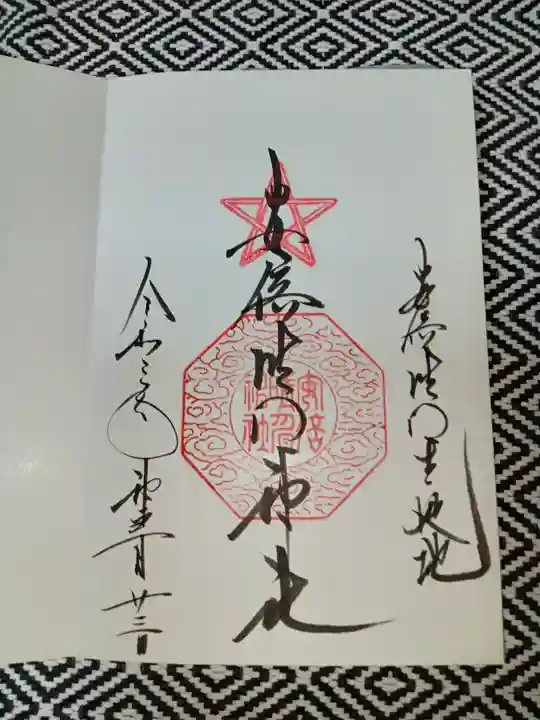 安倍晴明生誕地
安倍晴明神社
安倍晴明神社
令和二年
月廿三日